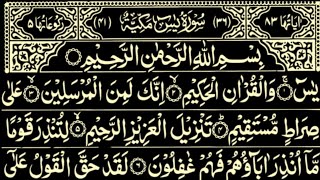 اٰیَاتُهَا ۸۳ (۳۶) سُوْرَةُ يٰسٓ مَكِّيَّةٌ (۴۱) رُكُوْعَاتُهَا ۵
بِسْمِ اللّٰهِ الرَّحْمٰنِ الرَّحِيْمِ
يٰسٓ ۚ۝۱ وَالْقُرْاٰنِ الْحَكِيْمِ ۙ۝۲ اِنَّكَ لَمِنَ الْمُرْسَلِيْنَ ۙ۝۳ عَلٰى
صِرَاطٍ مُّسْتَقِيْمٍ ؕ۝۴ تَنْزِيْلَ الْعَزِيْزِ الرَّحِيْمِ ۙ۝۵ لِتُنْذِرَ قَوْمًا
مَّاۤ اُنْذِرَ اٰبَآؤُهُمْ فَهُمْ غٰفِلُوْنَ ۝۶ لَقَدْ حَقَّ الْقَوْلُ عَلٰۤى